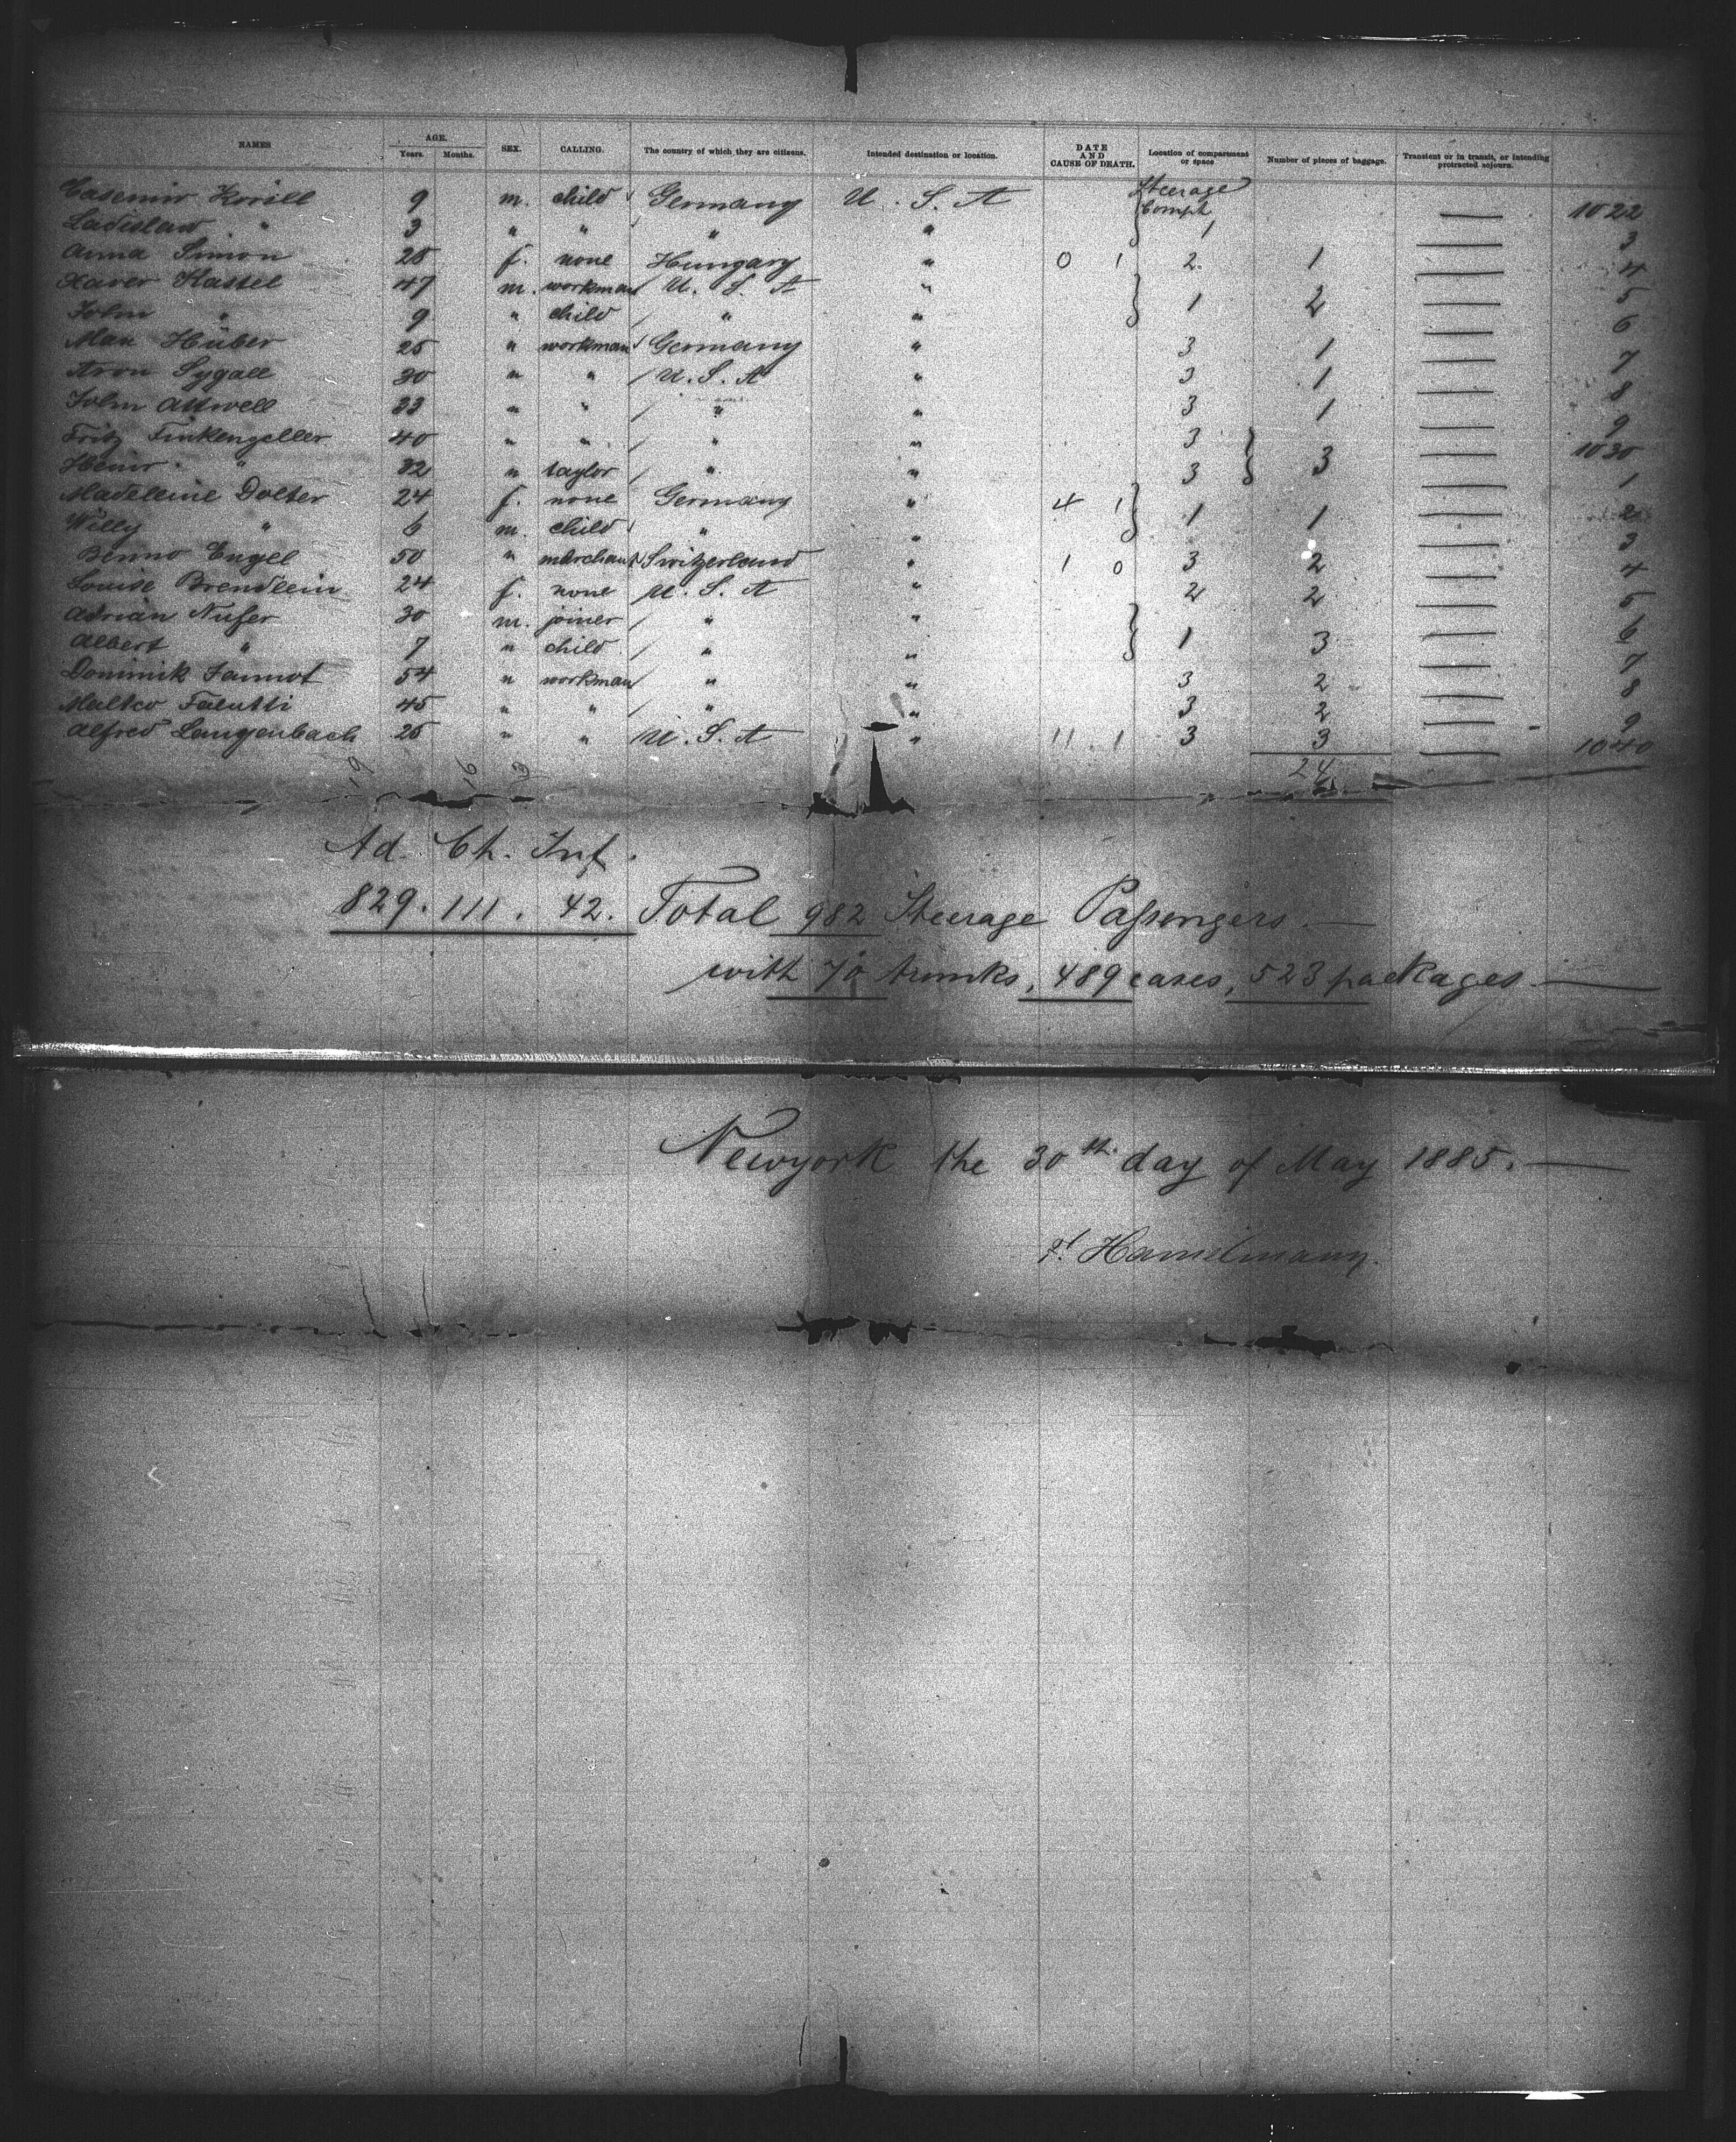 NAMES AGE. Years. Months. SEX. CALLING. The country of which they are citizens. Intended destination or location. DATE AND CAUSE OF DEATH. Location of compartment or space Number of pieces of baggage. Transient or in transit, or intending protracted sojourn.
Casemir Korill 9 m. child Germany U. S. A Steerage Compt. 1 — 1022
Ladislaw " 3 " " " " — 3
Anna Simon 28 f. none Hungary " 0 1 2 1 — 4
Xaver Kastel 47 m. workman U. S. A " 1 2 — 5
John " 9 " child " " — 6
Max Hüber 25 " workman Germany " 3 1 — 7
Aron Sygall 30 " " U. S. A " 3 1 — 8
John Attwell 33 " " " " 3 1 — 9
Fritz Finkenzeller 40 " " " " 3 3 — 1030
Heinr. " 32 " taylor " " 3 — 1
Madeleine Dolter 24 f. none Germany " 4 1 1 1 — 2
Willy " 6 m. child " " — 3
Benno Engel 50 " merchant Switzerland " 1 0 3 2 — 4
Louise Brendlein 24 f. none U. S. A " 2 2 — 5
Adrian Nufer 30 m. joiner " " 1 3 — 6
Albert " 7 " child " " — 7
Dominik Jannot 54 " workman " " 3 2 — 8
Maltco Falutti 45 " " " " 3 2 — 9
Alfred Langenbach 25 " " U. S. A " 11 1 3 3 — 1040
24
Ad. Ch. Inf.
829. 111. 42. Total 982 Steerage Passengers. —
with 70 trunks, 489 cases, 523 packages —
Newyork the 30th day of May 1885. —
Hamelmann.